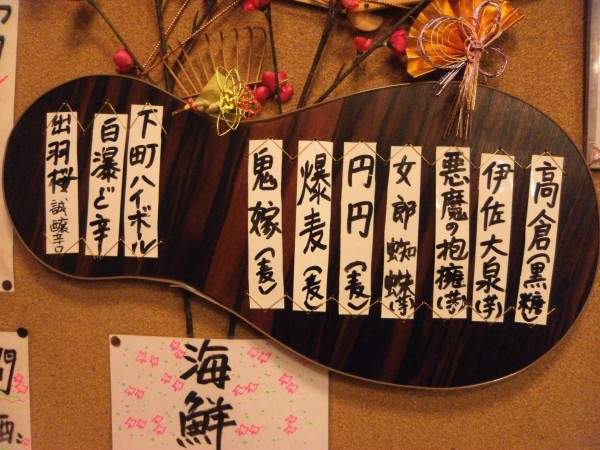 高倉(黒糖)
伊佐大泉(芋)
悪魔の抱擁(芋)
女郎蜘蛛(芋)
円円(麦)
爆麦(麦)
鬼嫁(麦)
下町ハイボール
白瀑ど辛
出羽桜 誠醸辛口
海鮮